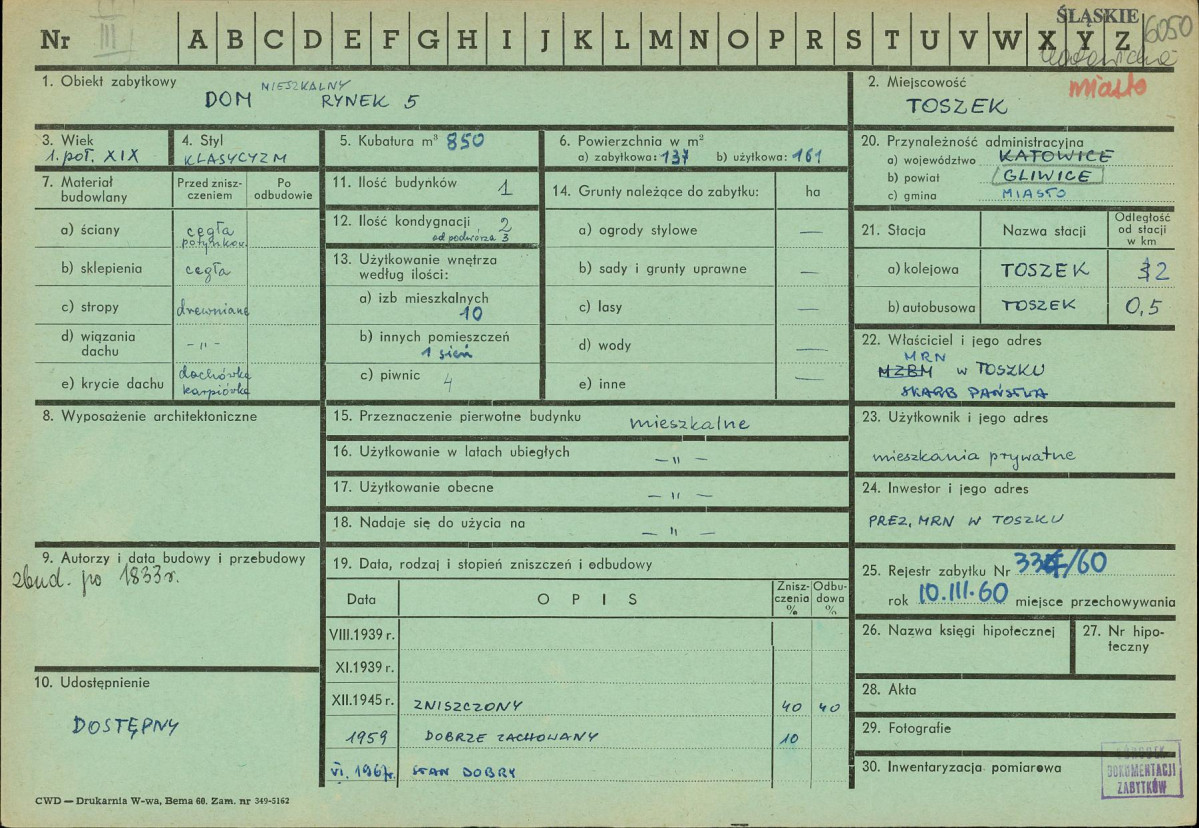 Nr III A B C D E F G H I J K L M N O P R S T U V W X Y Z
ŚLĄSKIE
6050
miasto
1. Obiekt zabytkowy
DOM MIESZKALNY RYNEK 5
2. Miejscowość
TOSZEK
3. Wiek
1. poł. XIX
4. Styl
KLASYCYZM
5. Kubatura m³ 850
6. Powierzchnia w m²
a) zabytkowa: 137 b) użytkowa: 161
20. Przynależność administracyjna
a) województwo KATOWICE
b) powiat GLIWICE
c) gmina MIASTO
7. Materiał budowlany
Przed zniszczeniem
Po odbudowie
a) ściany cegła
potynkow.
b) sklepienia cegła
c) stropy drewniane
d) wiązania dachu – " –
e) krycie dachu dachówka
karpiówka
11. Ilość budynków 1
12. Ilość kondygnacji 2
od podwórza 3
13. Użytkowanie wnętrza
według ilości:
a) izb mieszkalnych
10
b) innych pomieszczeń
1 sień
c) piwnic 4
14. Grunty należące do zabytku: ha
a) ogrody stylowe —
b) sady i grunty uprawne —
c) lasy —
d) wody —
e) inne —
21. Stacja Nazwa stacji Odległość od stacji w km
a) kolejowa TOSZEK 2
b) autobusowa TOSZEK 0,5
22. Właściciel i jego adres
MRN
MZBM w TOSZKU
SKARB PAŃSTWA
8. Wyposażenie architektoniczne
15. Przeznaczenie pierwotne budynku mieszkalne
16. Użytkowanie w latach ubiegłych – " –
17. Użytkowanie obecne – " –
18. Nadaje się do użycia na – " –
23. Użytkownik i jego adres
mieszkania prywatne
24. Inwestor i jego adres
PREZ. MRN W TOSZKU
9. Autorzy i data budowy i przebudowy
zbud. po 1833 r.
19. Data, rodzaj i stopień zniszczeń i odbudowy
Data OPIS Zniszczenia % Odbudowa %
VIII.1939 r.
XI.1939 r.
XII.1945 r. ZNISZCZONY 40 40
1959 DOBRZE ZACHOWANY 10
VI. 1967r. STAN DOBRY
25. Rejestr zabytku Nr /60
rok 10.III.60 miejsce przechowywania
26. Nazwa księgi hipotecznej
27. Nr hipoteczny
10. Udostępnienie
DOSTĘPNY
28. Akta
29. Fotografie
30. Inwentaryzacja pomiarowa
OŚRODEK
DOKUMENTACJI
ZABYTKÓW
CWD — Drukarnia W-wa, Bema 60. Zam. nr 349-5162